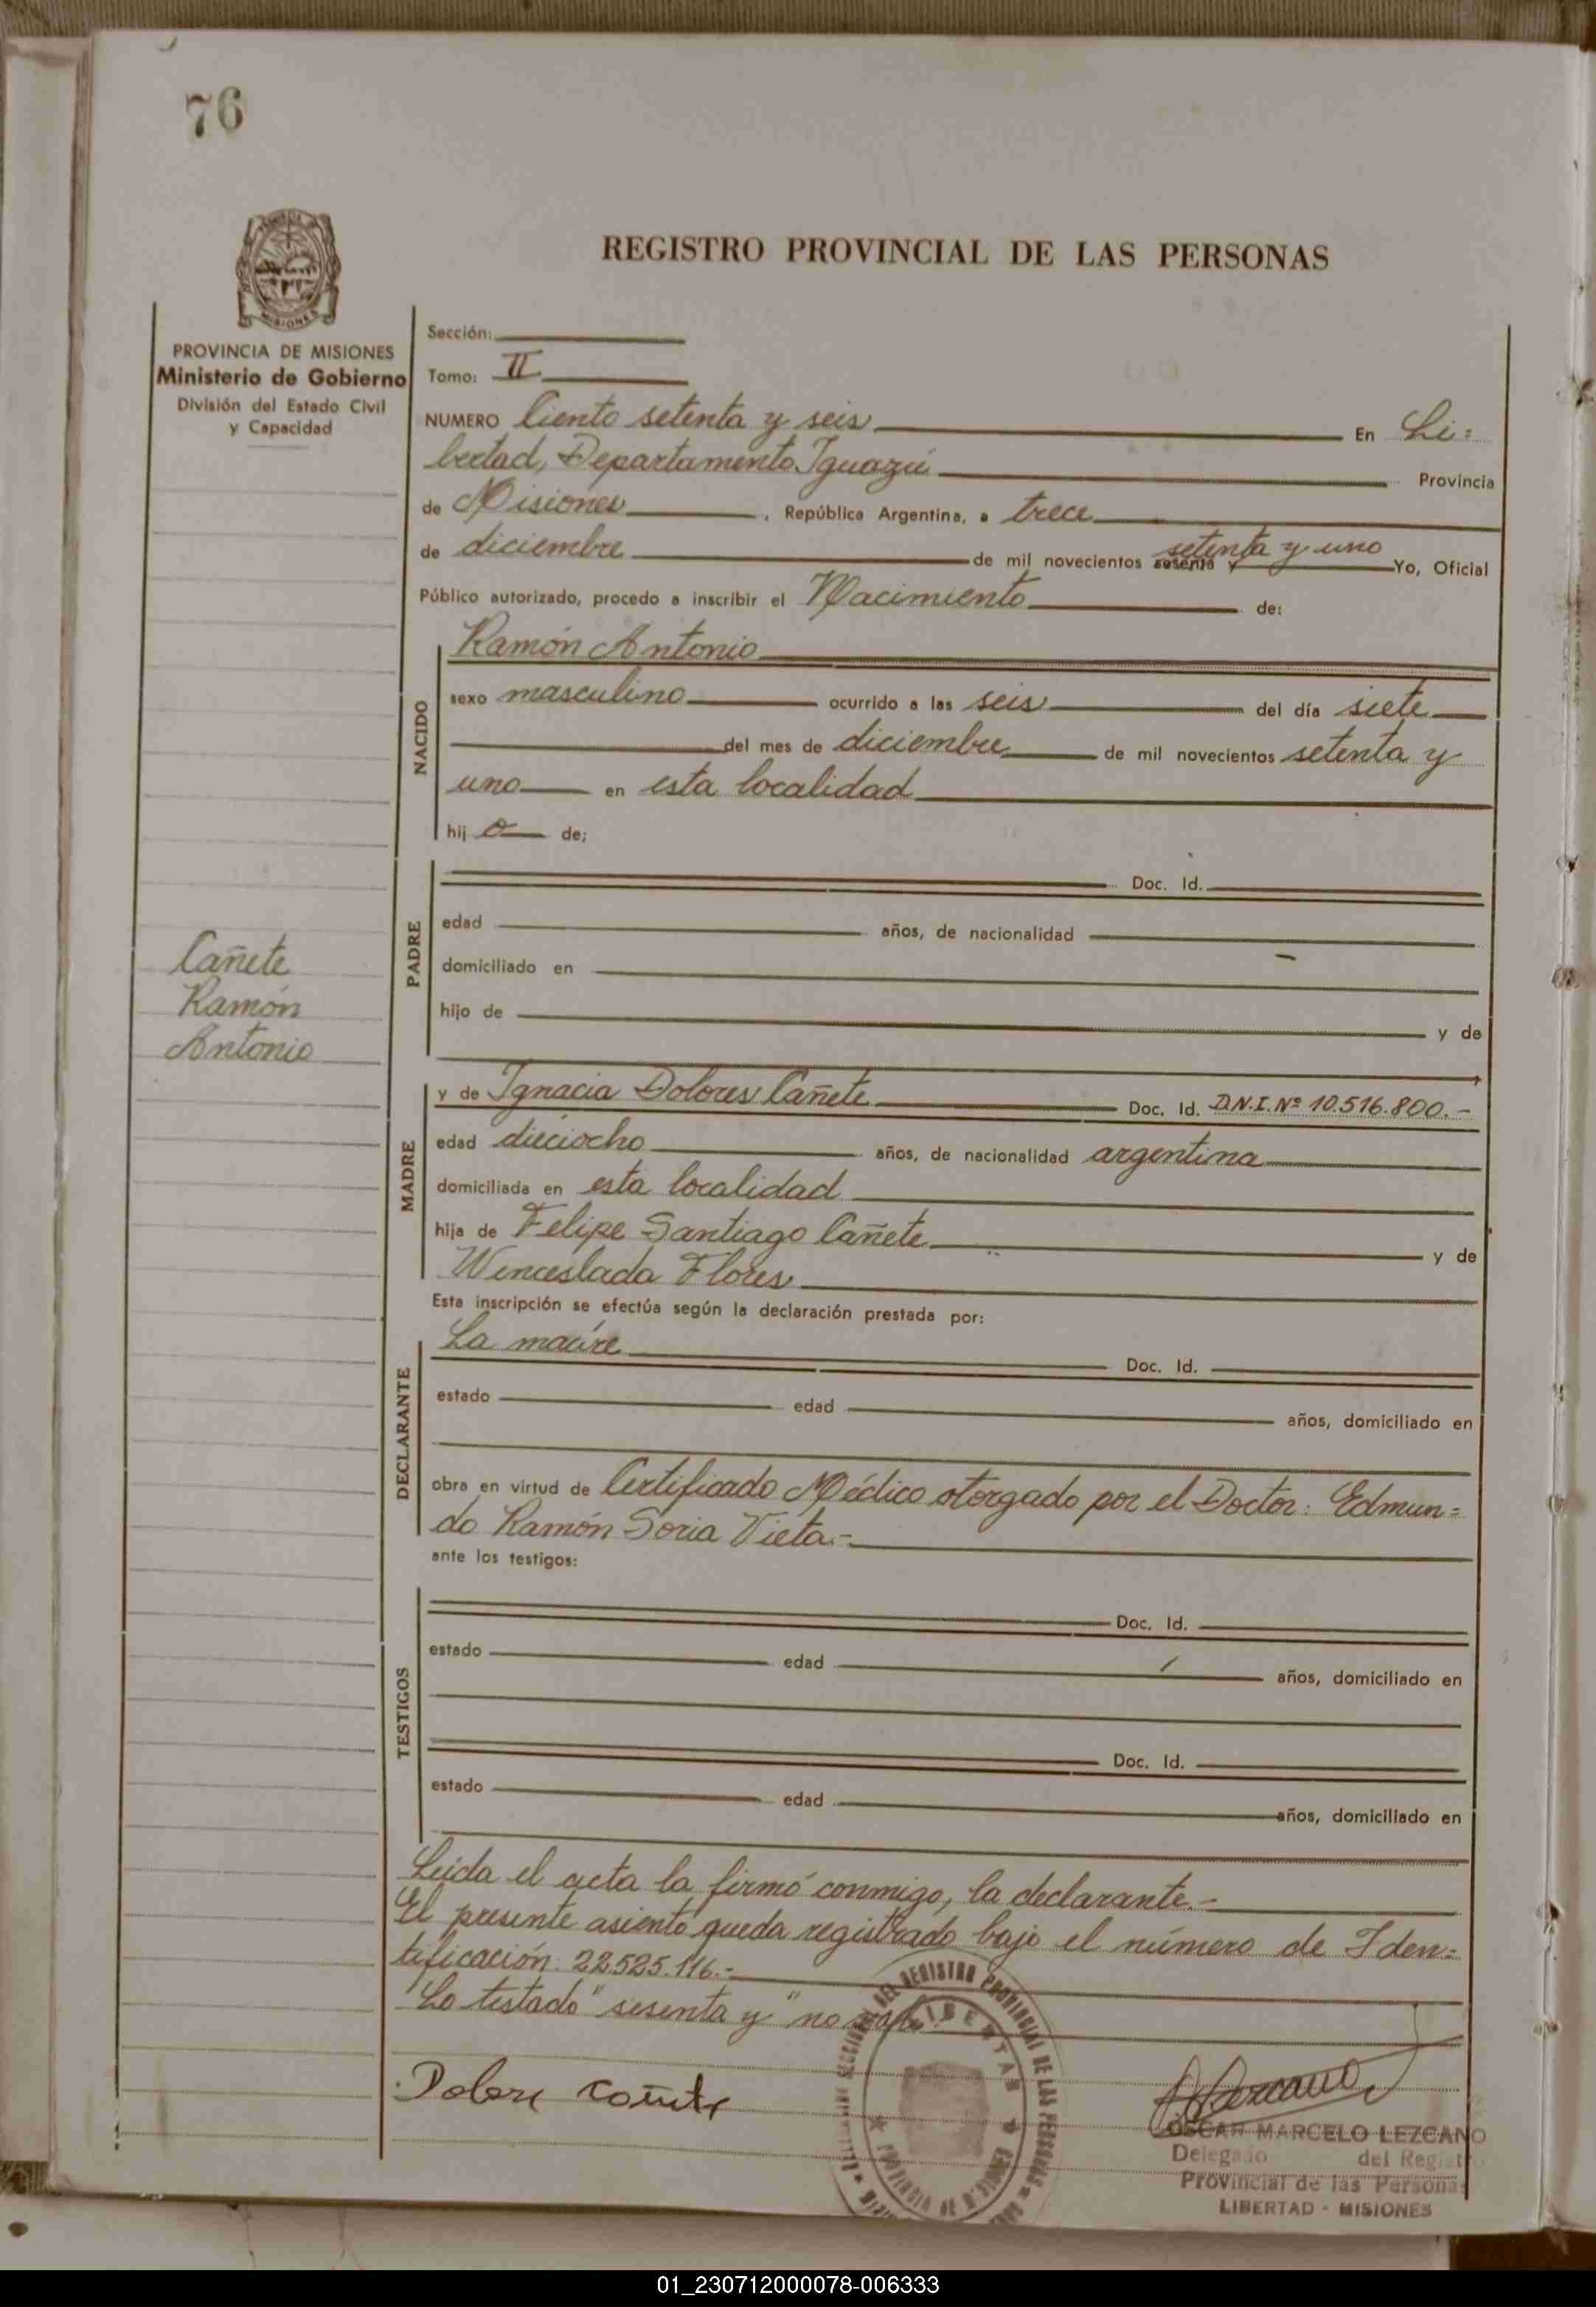 76
REGISTRO PROVINCIAL DE LAS PERSONAS
MISIONES
PROVINCIA DE MISIONES
Ministerio de Gobierno
División del Estado Civil
y Capacidad
Sección:
Tomo: II
NUMERO Ciento setenta y seis En Li=
bertad, Departamento Iguazú Provincia
de Misiones, República Argentina, a trece
de diciembre de mil novecientos sesenta y setenta y uno Yo, Oficial
Público autorizado, procedo a inscribir el Nacimiento de:
NACIDO
Ramón Antonio
sexo masculino ocurrido a las seis del día siete
del mes de diciembre de mil novecientos setenta y
uno en esta localidad
hij o de;
PADRE
Doc. Id.
edad años, de nacionalidad
domiciliado en
hijo de y de
Cañete
Ramón
Antonio
MADRE
y de Ignacia Dolores Cañete Doc. Id. D.N.I. Nº 10.516.800.-
edad dieciocho años, de nacionalidad argentina
domiciliada en esta localidad
hija de Felipe Santiago Cañete y de
Wenceslada Flores
Esta inscripción se efectúa según la declaración prestada por:
DECLARANTE
La madre Doc. Id.
estado edad años, domiciliado en
obra en virtud de Certificado Médico otorgado por el Doctor: Edmun=
do Ramón Soria Vieta.-
ante los testigos:
TESTIGOS
Doc. Id.
estado edad años, domiciliado en
Doc. Id.
estado edad años, domiciliado en
Leída el acta la firmó conmigo, la declarante.-
El presente asiento queda registrado bajo el número de Iden=
tificación: 22.525.116.-
"Lo testado" sesenta y "no vale.
Dolore Cañete
OSCAR MARCELO LEZCANO
Delegado del Registro
Provincial de las Personas
LIBERTAD - MISIONES
DEL REGISTRO PROVINCIAL DE LAS PERSONAS
LIBERTAD
PROVINCIA DE MISIONES
01_230712000078-006333